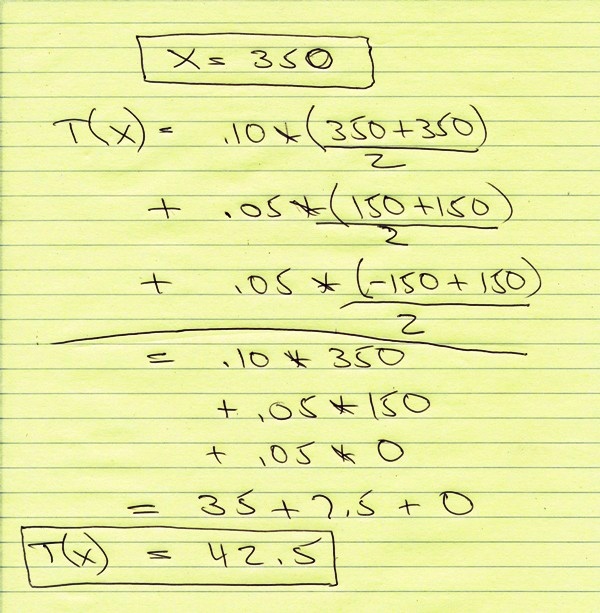 X = 350
T(X) = .10 * (350+350)
2
+ .05 * (150+150)
2
+ .05 * (-150 + 150)
2
= .10 * 350
+ .05 * 150
+ .05 * 0
= 35 + 7.5 + 0
T(X) = 42.5